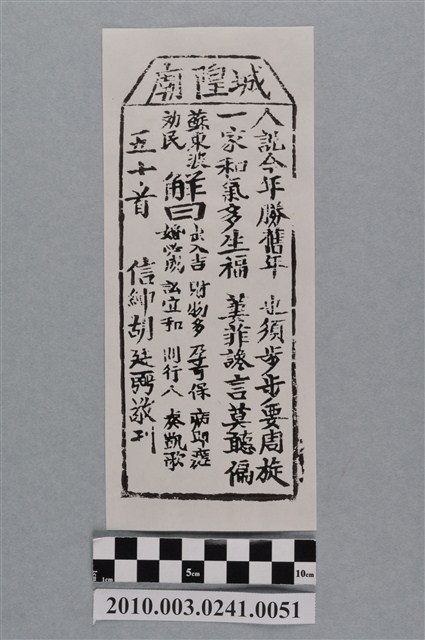 城隍廟
人說今年勝舊年 也須步步要周旋
一家和氣多生福 萋菲讒言莫聽偏
蘇東波
勸民
解曰
出入吉 財物多 孕可保 病即瘥
婚必成 訟宜和 問行人 奏凱歌
五十首 信紳胡廷 敬刊
5cm
10cm
2010.003.0241.0051